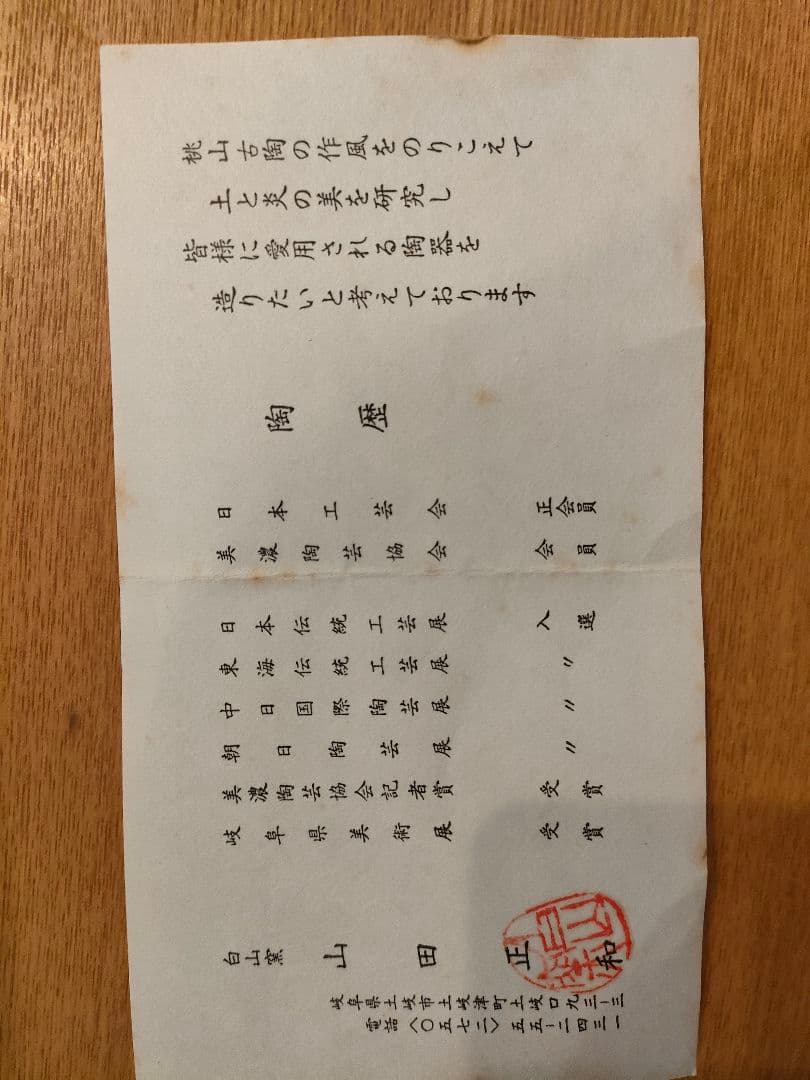 桃山古陶の作風をのりこえて
土と炎の美を研究し
皆様に愛用される陶器を
造りたいと考えております
陶歴
日本工芸会 正会員
美濃陶芸協会 会員
日本伝統工芸展 入選
東海伝統工芸展 〃
中日国際陶芸展 〃
朝日陶芸展 〃
美濃陶芸協会記者賞 受賞
岐阜県美術展 受賞
白山窯 山田正和
岐阜県土岐市土岐津町土岐口九三ー三
電話〈〇五七二〉五五ー二四三一